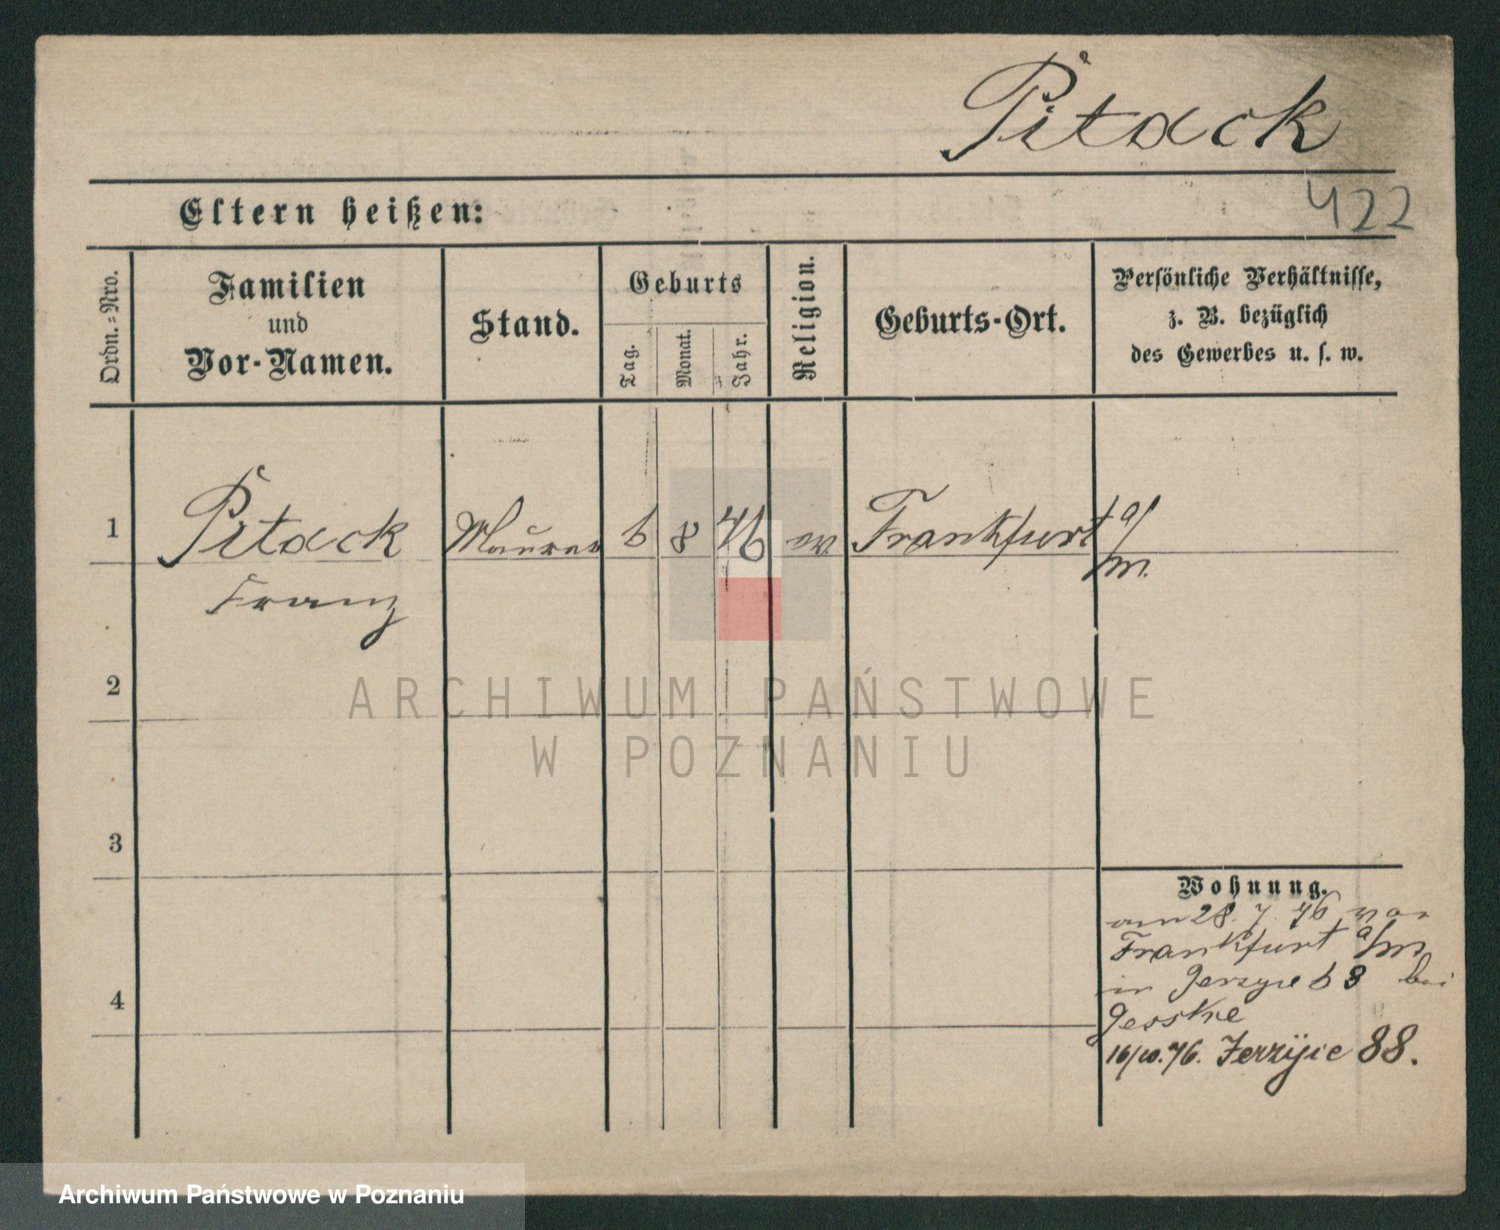 Pitack
422
Eltern heißen:
Ordn.-Nro.
Familien
und
Vor-Namen.
Stand.
Geburts
Tag.
Monat.
Jahr.
Religion.
Geburts-Ort.
Persönliche Verhältnisse,
z. B. bezüglich
des Gewerbes u. s. w.
1
Pitack
Franz
Maurer
6
8
46
ev
Frankfurt a/m.
2
3
4
Wohnung.
am 28. 7. 76 von
Frankfurt a/m
in Jerzyce 63 bei
16/10.76. Jerzyce 88.
ARCHIWUM PAŃSTWOWE
W POZNANIU
Archiwum Państwowe w Poznaniu